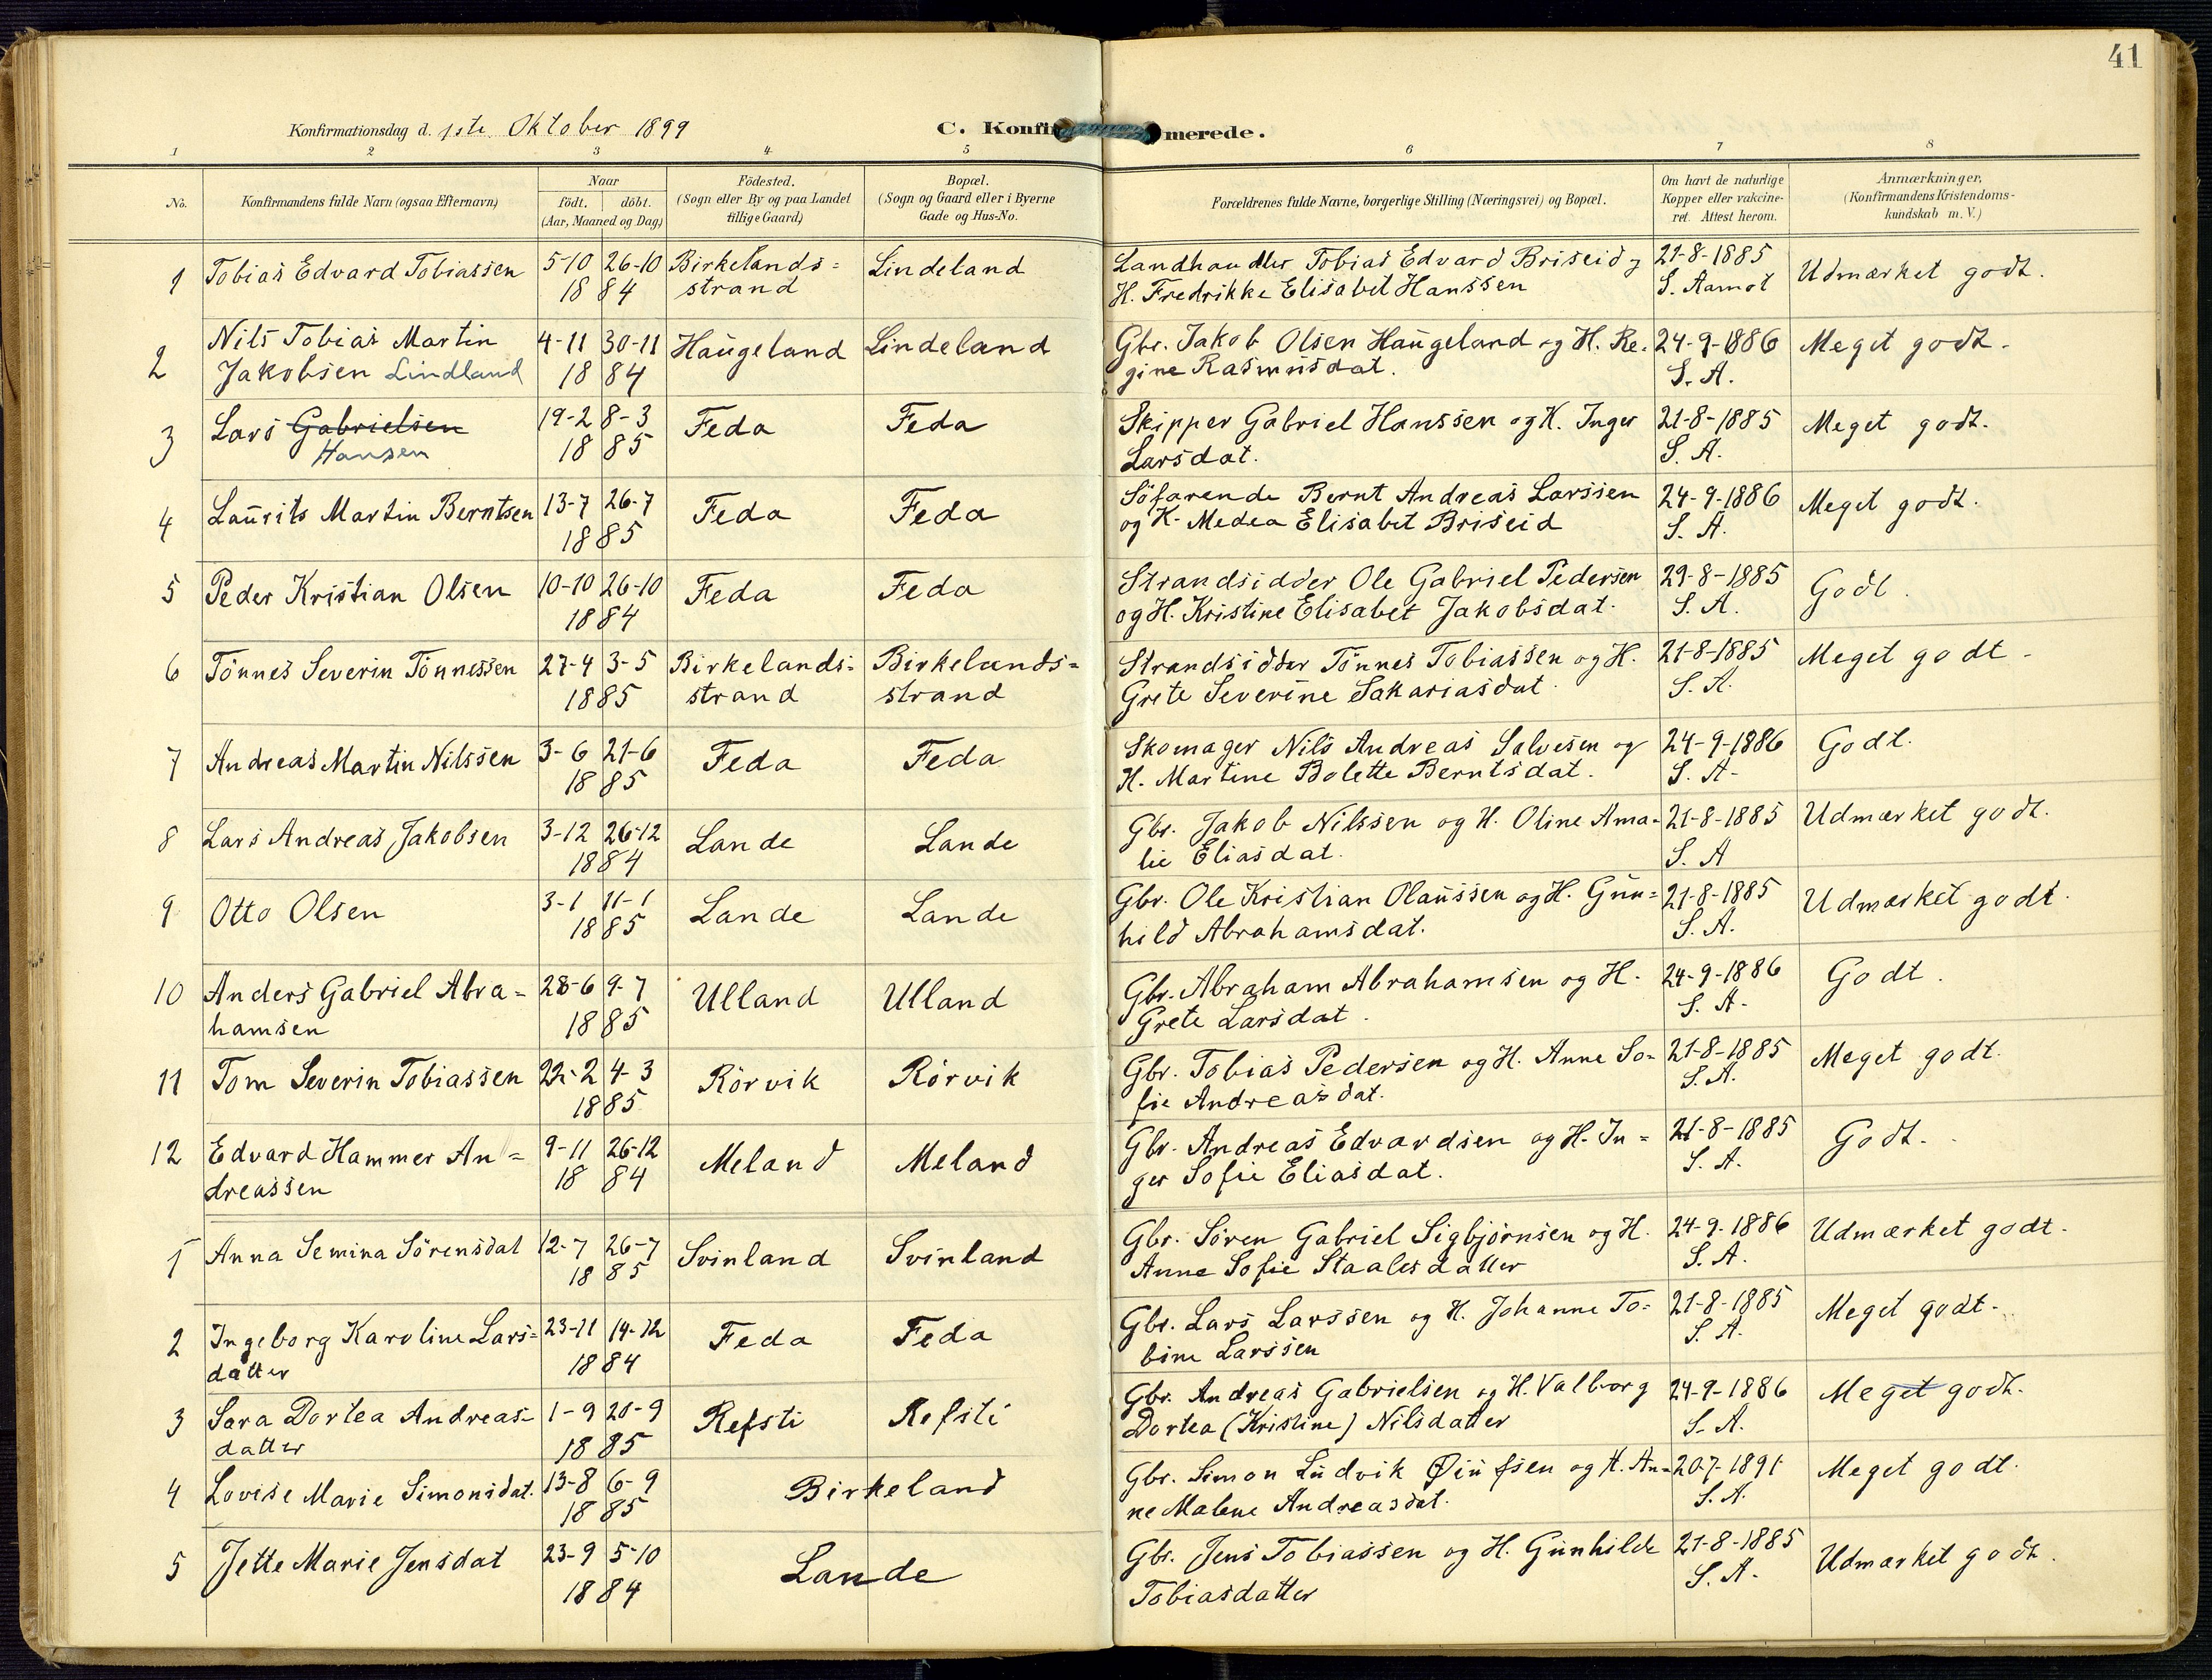 41
Konfirmationsdag d. 1ste Oktober 1899
C. Konfir merede.
1 2 3 4 5 6 7 8
No.
Konfirmandens fulde Navn (ogsaa Efternavn)
Naar
födt. döbt.
(Aar, Maaned og Dag)
Födested.
(Sogn eller By og paa Landet
tillige Gaard)
Bopæl.
(Sogn og Gaard eller i Byerne
Gade og Hus-No.
Forældrenes fulde Navne, borgerlige Stilling (Næringsvei) og Bopæl.
Om havt de naturlige
Kopper eller vakcine-
ret. Attest herom.
Anmærkninger,
(Konfirmandens Kristendoms-
kundskab m. V.)
1 Tobias Edvard Tobiassen 5-10 26-10 Birkelands= Lindeland Landhandler Tobias Edvard Briseid og 21-8-1885 Udmærket godt.
1884 strand H. Fredrikke Elisabet Hanssen S. Aamot
2 Nils Tobias Martin 4-11 30-11 Haugeland Lindeland Gbr. Jakob Olsen Haugeland og H. Re- 24-9-1886 Meget godt.
Jakobsen Lindland 1884 gine Rasmusdat. S. A.
3 Lars Gabrielsen 19-2 8-3 Feda Feda Skipper Gabriel Hanssen og H. Inger 21-8-1885 Meget godt.
Hansen 1885 Larsdat. S. A.
4 Laurits Martin Berntsen 13-7 26-7 Feda Feda Söfarende Bernt Andreas Larssen 24-9-1886 Meget godt.
1885 og H. Medea Elisabet Briseid S. A.
5 Peder Kristian Olsen 10-10 26-10 Feda Feda Strandsidder Ole Gabriel Pedersen 29-8-1885 Godt.
1884 og H. Kristine Elisabet Jakobsdat. S. A.
6 Tönnes Severin Tönnessen 27-4 3-5 Birkelands= Birkelands= Strandsidder Tönnes Tobiassen og H. 21-8-1885 Meget godt
1885 strand strand Grete Severine Sakariasdat. S. A.
7 Andreas Martin Nilssen 3-6 21-6 Feda Feda Skomager Nils Andreas Salvesen og 24-9-1886 Godt.
1885 H. Martine Bolette Berntsdat. S. A.
8 Lars Andreas Jakobsen 3-12 26-12 Lande Lande Gbr. Jakob Nilssen og H. Oline Ama- 21-8-1885 Udmærket godt.
1884 lie Eliasdat. S. A
9 Otto Olsen 3-1 11-1 Lande Lande Gbr. Ole Kristian Olaussen og H. Gun= 21-8-1885 Udmærket godt.
1885 hild Abrahamsdat. S. A.
10 Anders Gabriel Abra= 28-6 9-7 Ulland Ulland Gbr. Abraham Abrahamsen og H. 24-9-1886 Godt.
hamsen 1885 Grete Larsdat. S. A.
11 Tom Severin Tobiassen 22-2 4-3 Rörvik Rörvik Gbr. Tobias Pedersen og H. Anne So- 21-8-1885 Meget godt.
1885 fie Andreasdat. S. A.
12 Edvard Hammer An= 9-11 26-12 Meland Meland Gbr. Andreas Edvardsen og H. In= 21-8-1885 Godt.
dreassen 1884 ger Sofie Eliasdat. S. A.
1 Anna Semina Sörensdat 12-7 26-7 Svinland Svinland Gbr. Sören Gabriel Sigbjörnsen og H. 24-9-1886 Udmærket godt.
1885 Anne Sofie Staalesdatter S. A.
2 Ingeborg Karoline Lars= 23-11 14-12 Feda Feda Gbr. Lars Larssen og H. Johanne To= 21-8-1885 Meget godt.
datter 1884 bine Larssen S. A.
3 Sara Dortea Andreas= 1-9 20-9 Refsti Refsti Gbr. Andreas Gabrielsen og H. Valborg 24-9-1886 Meget godt.
datter 1885 Dortea (Kristine) Nilsdatter S. A.
4 Lovise Marie Simonsdat. 13-8 6-9 Birkeland Gbr. Simon Ludvik Öiufsen og H. An= 20-7-1891 Meget godt.
1885 ne Malene Andreasdat. S. A.
5 Jette Marie Jensdat 23-9 5-10 Lande Gbr. Jens Tobiassen og H. Gunhilde 21-8-1885 Udmærket godt.
1884 Tobiasdatter S. A.